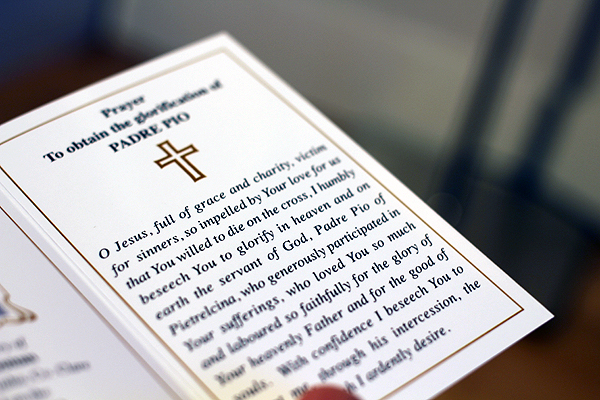 Prayer
To obtain the glorification of
PADRE PIO
O Jesus, full of grace and charity, victim
for sinners, so impelled by Your love for us
that You willed to die on the cross, I humbly
beseech You to glorify in heaven and on
earth the servant of God, Padre Pio of
Pietrelcina, who generously participated in
Your sufferings, who loved You so much
and laboured so faithfully for the glory of
Your heavenly Father and for the good of
souls. With confidence I beseech You to
me through his intercession, the
I ardently desire.